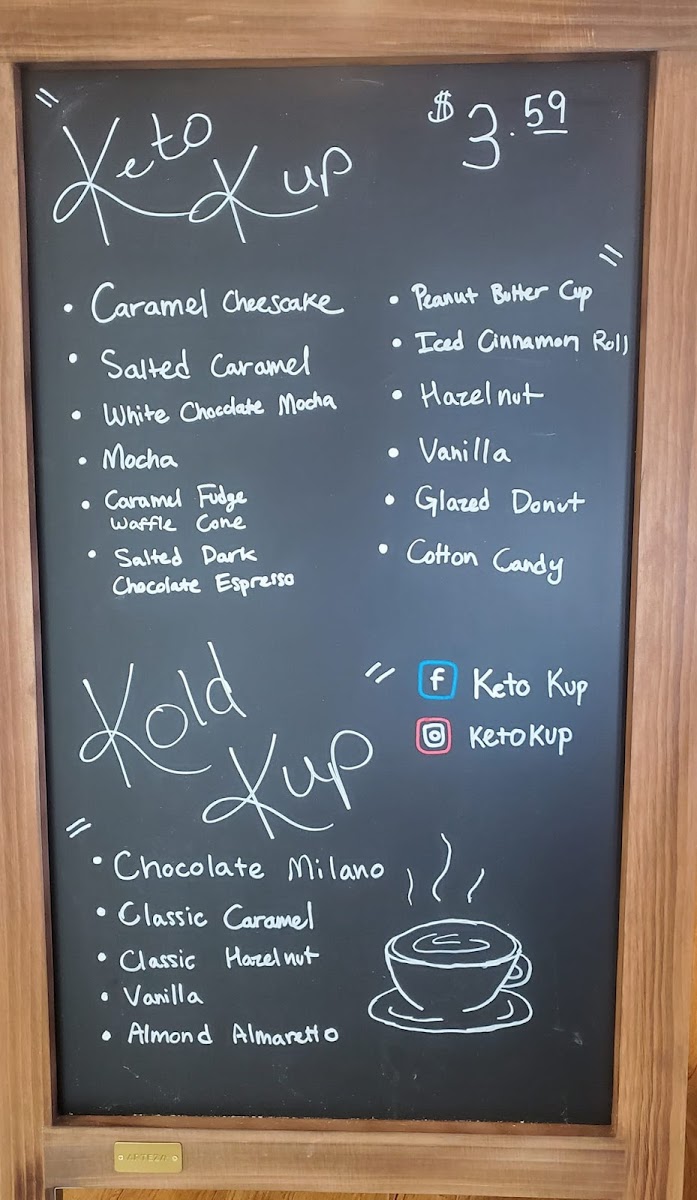 Keto Kup
$3.59
• Caramel Cheescake
• Salted Caramel
• White Chocolate Mocha
• Mocha
• Caramel Fudge
Waffle Cone
• Salted Dark
Chocolate Espresso
• Peanut Butter Cup
• Iced Cinnamon Roll
• Hazelnut
• Vanilla
• Glazed Donut
• Cotton Candy
f Keto Kup
KetoKup
Kold
Kup
• Chocolate Milano
• Classic Caramel
• Classic Hazelnut
• Vanilla
• Almond Almaretto
ARTEZA